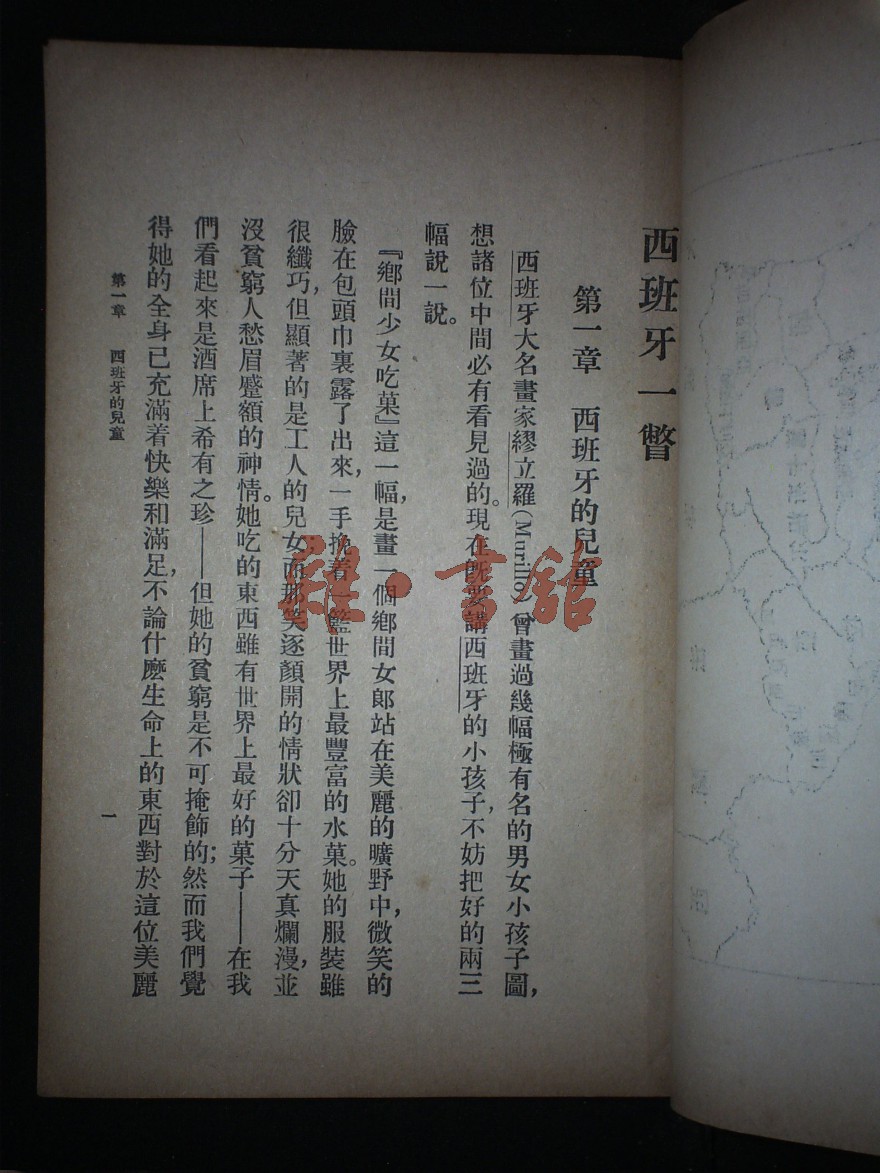 西班牙一瞥
第一章　西班牙的兒童
西班牙大名畫家繆立羅(Murillo)曾畫過幾幅極有名的男女小孩子圖，
想諸位中間必有看見過的。現在既要講西班牙的小孩子，不妨把好的兩三
幅說一說。
『鄉間少女吃菓』這一幅，是畫一個鄉間女郎站在美麗的曠野中，微笑的
臉在包頭巾裏露了出來，一手挽着一籃世界上最豐富的水菓。她的服裝雖
很纖巧，但顯著的是工人的兒女而那笑逐顏開的情狀卻十分天真爛漫，並
沒貧窮人愁眉蹙額的神情。她吃的東西雖有世界上最好的菓子——在我
們看起來是酒席上希有之珍——但她的貧窮是不可掩飾的；然而我們覺
得她的全身已充滿着快樂和滿足，不論什麼生命上的東西對於這位美麗
第一章　西班牙的兒童
一
雜·書舘